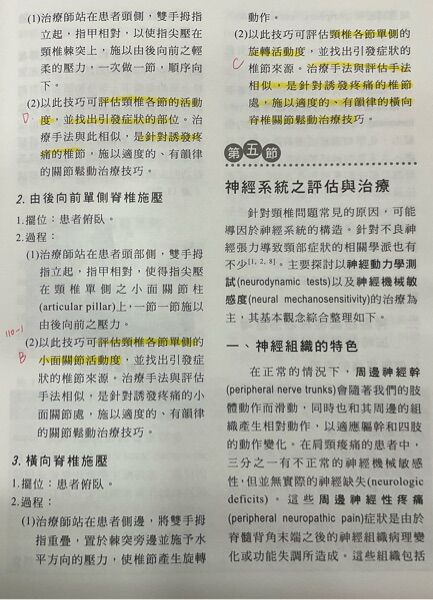 (1)治療師站在患者頭側，雙手拇指
立起，指甲相對，以使指尖壓在
頸椎棘突上，施以由後向前之輕
柔的壓力，一次做一節，順序向
下。
(2)以此技巧可評估頸椎各節的活動
度，並找出引發症狀的部位。治
療手法與此相似，是針對誘發疼
痛的椎節，施以適度的、有韻律
的關節鬆動治療技巧。
D
2. 由後向前單側脊椎施壓
1.擺位：患者俯臥。
2.過程：
(1)治療師站在患者頭部側，雙手拇
指立起，指甲相對，使得指尖壓
在頸椎單側之小面關節柱
(articular pillar)上，一節一節施以
由後向前之壓力。
110-1
(2)以此技巧可評估頸椎各節單側的
B
小面關節活動度，並找出引發症
狀的椎節來源。治療手法與評估
手法相似，是針對誘發疼痛的小
面關節處，施以適度的、有韻律
的關節鬆動治療技巧。
3. 橫向脊椎施壓
1.擺位：患者俯臥。
2.過程：
(1)治療師站在患者側邊，將雙手拇
指重疊，置於棘突旁邊並施予水
平方向的壓力，使椎節產生旋轉
動作。
(2)以此技巧可評估頸椎各節單側的
旋轉活動度，並找出引發症狀的
C
椎節來源。治療手法與評估手法
相似，是針對誘發疼痛的椎節
處，施以適度的、有韻律的橫向
脊椎關節鬆動治療技巧。
第五節
神經系統之評估與治療
針對頸椎問題常見的原因，可能
導因於神經系統的構造。針對不良神
經張力導致頸部症狀的相關學派也有
不少[1, 2, 8]。主要探討以神經動力學測
試(neurodynamic tests)以及神經機械敏
感度(neural mechanosensitivity)的治療為
主，其基本觀念綜合整理如下。
一、神經組織的特色
在正常的情況下，周邊神經幹
(peripheral nerve trunks)會隨著我們的肢
體動作而滑動，同時也和其周邊的組
織產生相對動作，以適應軀幹和四肢
的動作變化。在肩頸痠痛的患者中，
三分之一有不正常的神經機械敏感
性，但並無實際的神經缺失(neurologic
deficits)。這些周邊神經性疼痛
(peripheral neuropathic pain)症狀是由於
脊髓背角末端之後的神經組織病理變
化或功能失調所造成。這些組織包括